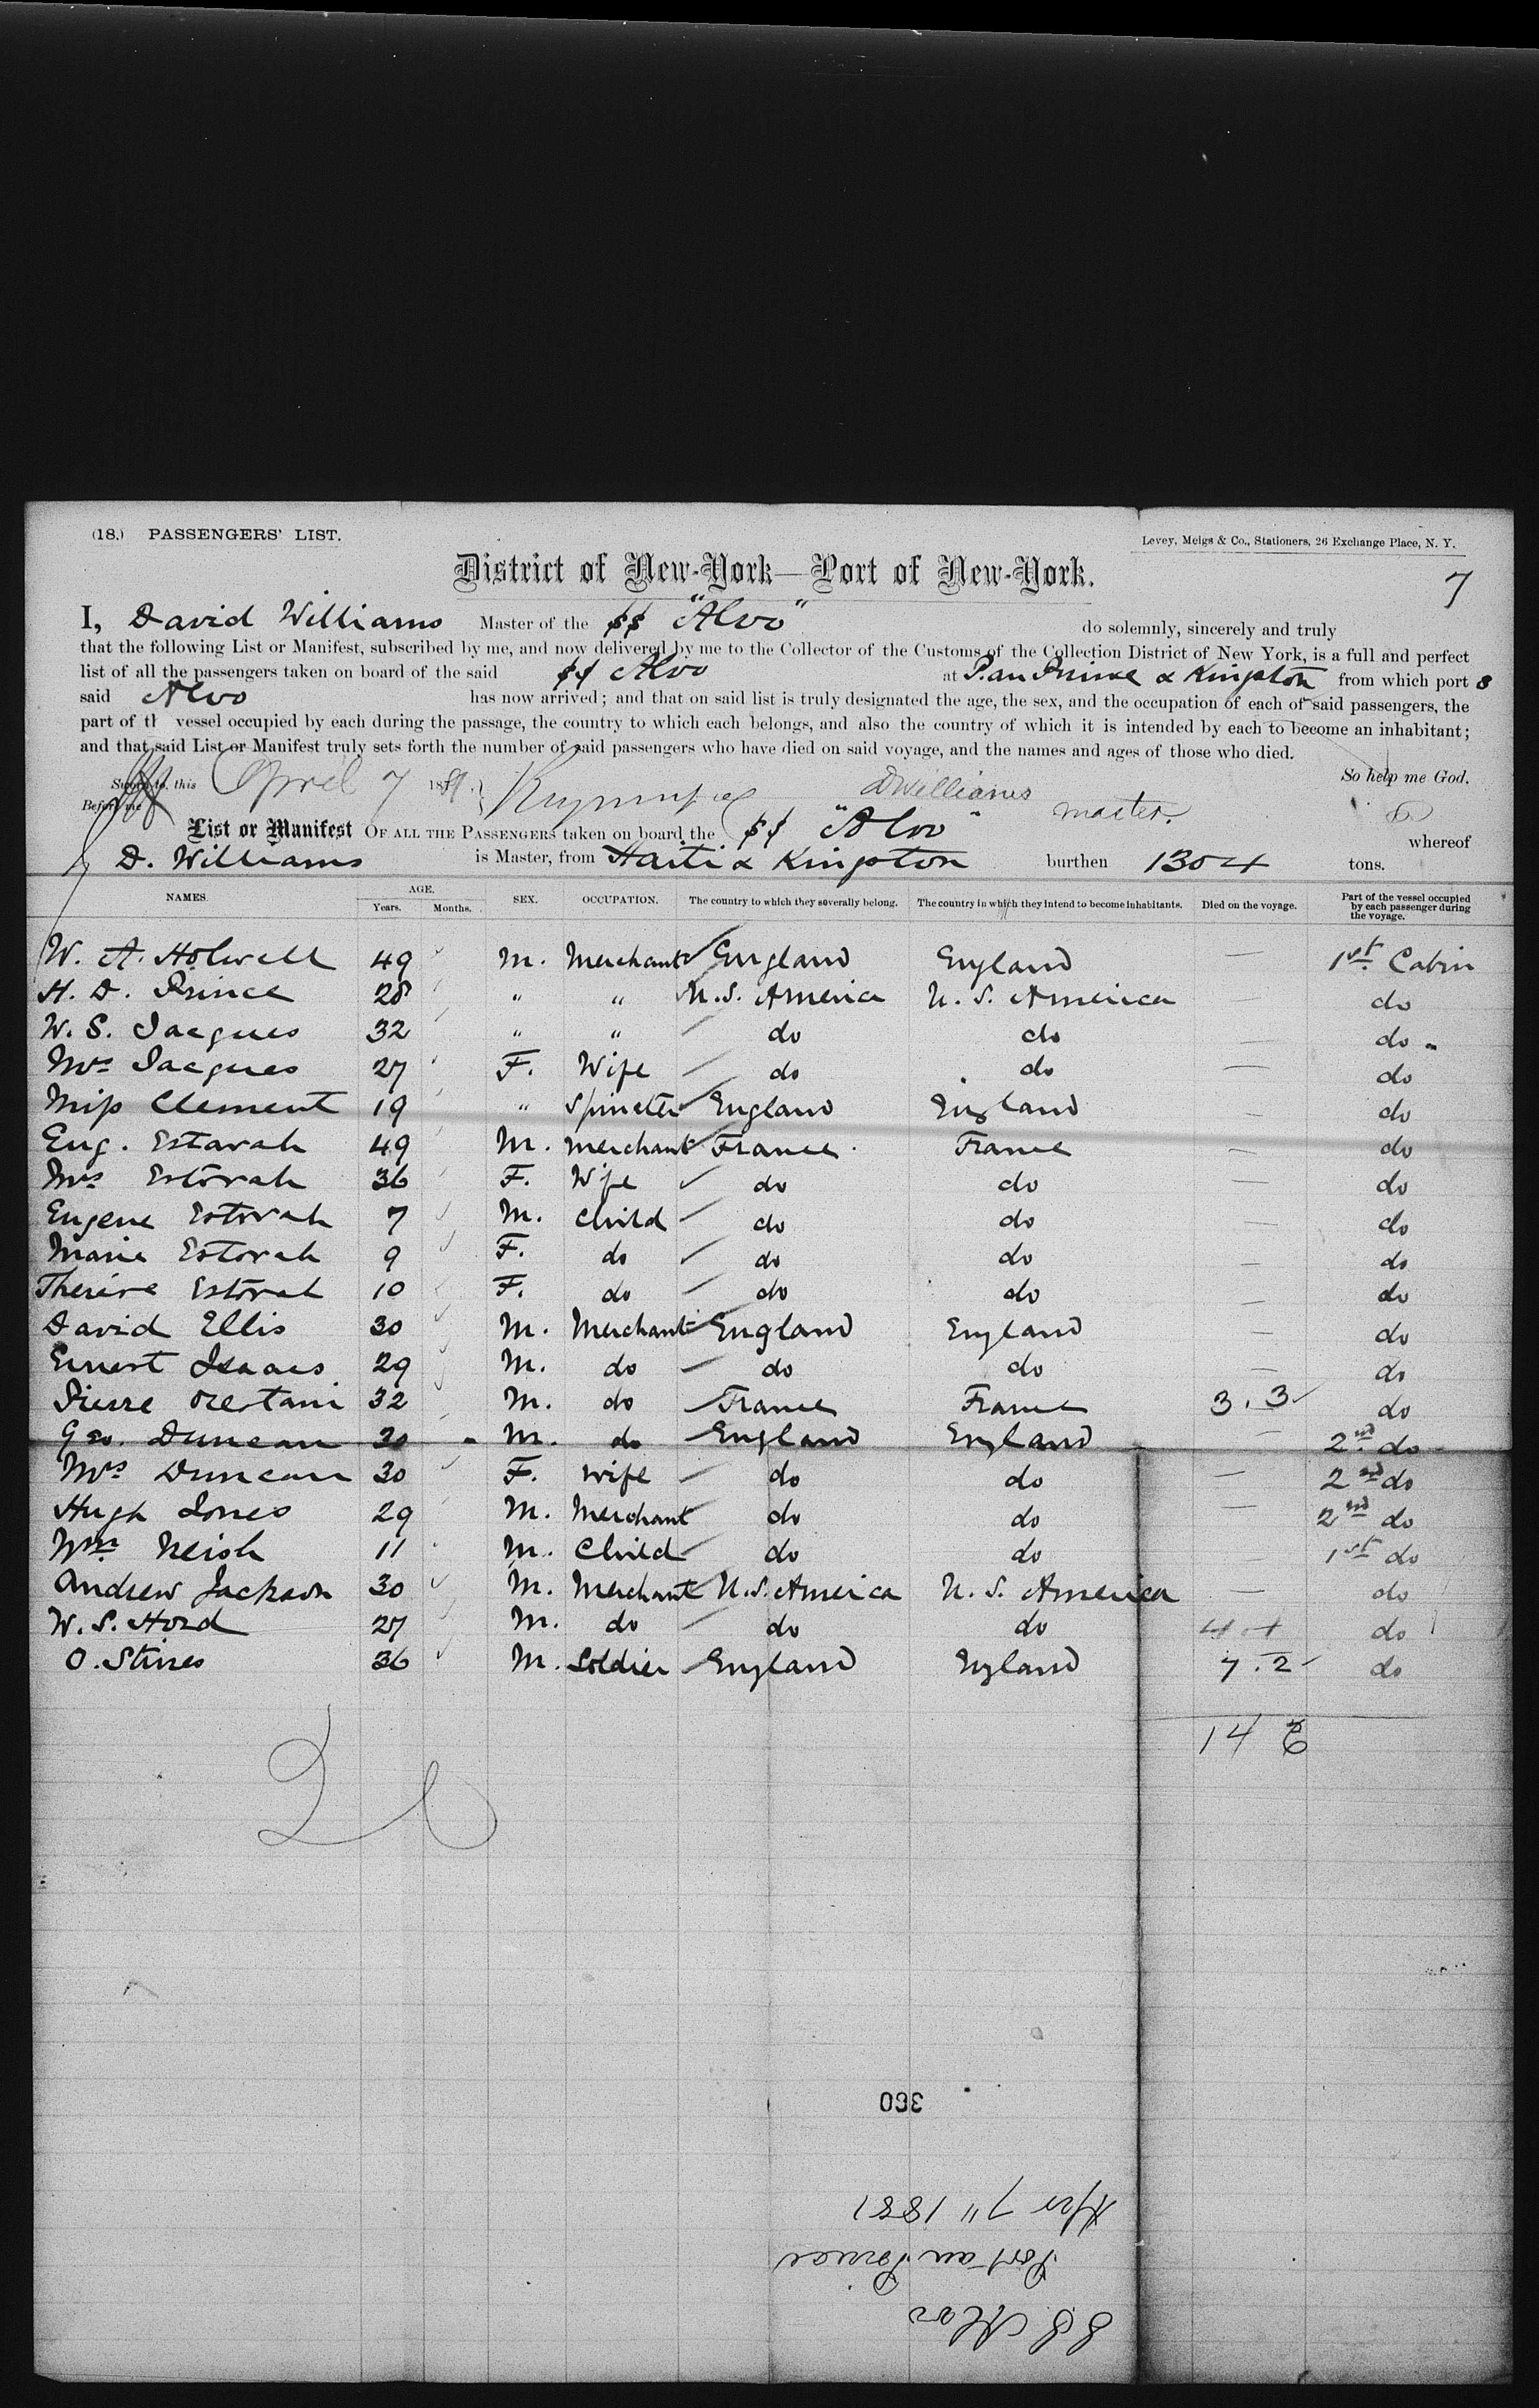 (18.) PASSENGERS' LIST.
Levey, Meigs & Co., Stationers, 26 Exchange Place, N. Y.
District of New-York—Port of New-York.
7
I, David Williams Master of the SS "Alvo" do solemnly, sincerely and truly
that the following List or Manifest, subscribed by me, and now delivered by me to the Collector of the Customs of the Collection District of New York, is a full and perfect
list of all the passengers taken on board of the said SS Alvo at P. au Prince & Kingston from which port s
said Alvo has now arrived; and that on said list is truly designated the age, the sex, and the occupation of each of said passengers, the
part of th vessel occupied by each during the passage, the country to which each belongs, and also the country of which it is intended by each to become an inhabitant;
and that said List or Manifest truly sets forth the number of said passengers who have died on said voyage, and the names and ages of those who died.
So help me God.
Sworn to, this April 7 1881. DWilliams
Before me master.
List or Manifest OF ALL THE PASSENGERS taken on board the SS "Alvo" whereof
D. Williams is Master, from Haiti & Kingston burthen 1304 tons.
NAMES. AGE. Years. Months. SEX. OCCUPATION. The country to which they severally belong. The country in which they intend to become inhabitants. Died on the voyage. Part of the vessel occupied by each passenger during the voyage.
W. A. Holwell 49 M. Merchant England England — 1st Cabin
H. D. Prince 28 " " U.S. America U. S. America — do
W. S. Jacques 32 " " do do — do
Mrs Jacques 27 F. Wife do do — do
Miss Clement 19 " Spinster England England — do
Eug. Estavah 49 M. Merchant France France — do
Mrs Estorah 36 F. Wife do do — do
Eugene Estorah 7 M. Child do do — do
Marie Estorah 9 F. do do do — do
Estorah 10 F. do do do — do
David Ellis 30 M. Merchant England England — do
Ernest Isaacs 29 M. do do do — do
Pierre 32 M. do France France 3.3 do
Geo. Duncan 30 M. do England England — 2nd do
Mrs Duncan 30 F. wife do do — 2nd do
Hugh Jones 29 M. Merchant do do — 2nd do
Wm Neish 11 M. Child do do — 1st do
Andrew Jackson 30 M. Merchant U.S. America U. S. America — do
W. S. Hord 27 M. do do do 4.1 do
O. Stines 36 M. Soldier England England 7.2 do
14 6
20
360
SS Alvo
Port au Prince
Apr 7" 1881